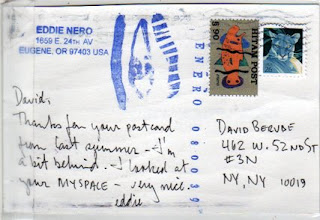 EDDIE NERO
1659 E. 24TH AV
EUGENE, OR 97403 USA
ENERO 080039
$.90
HTAEK POST
David:
Thanks for your postcard
from last summer - I'm
a bit behind. - I looked at
your MYSPACE - very nice.
eddie
DAVID BERUBE
462 W. 52ND ST
#3N
NY, NY 10019